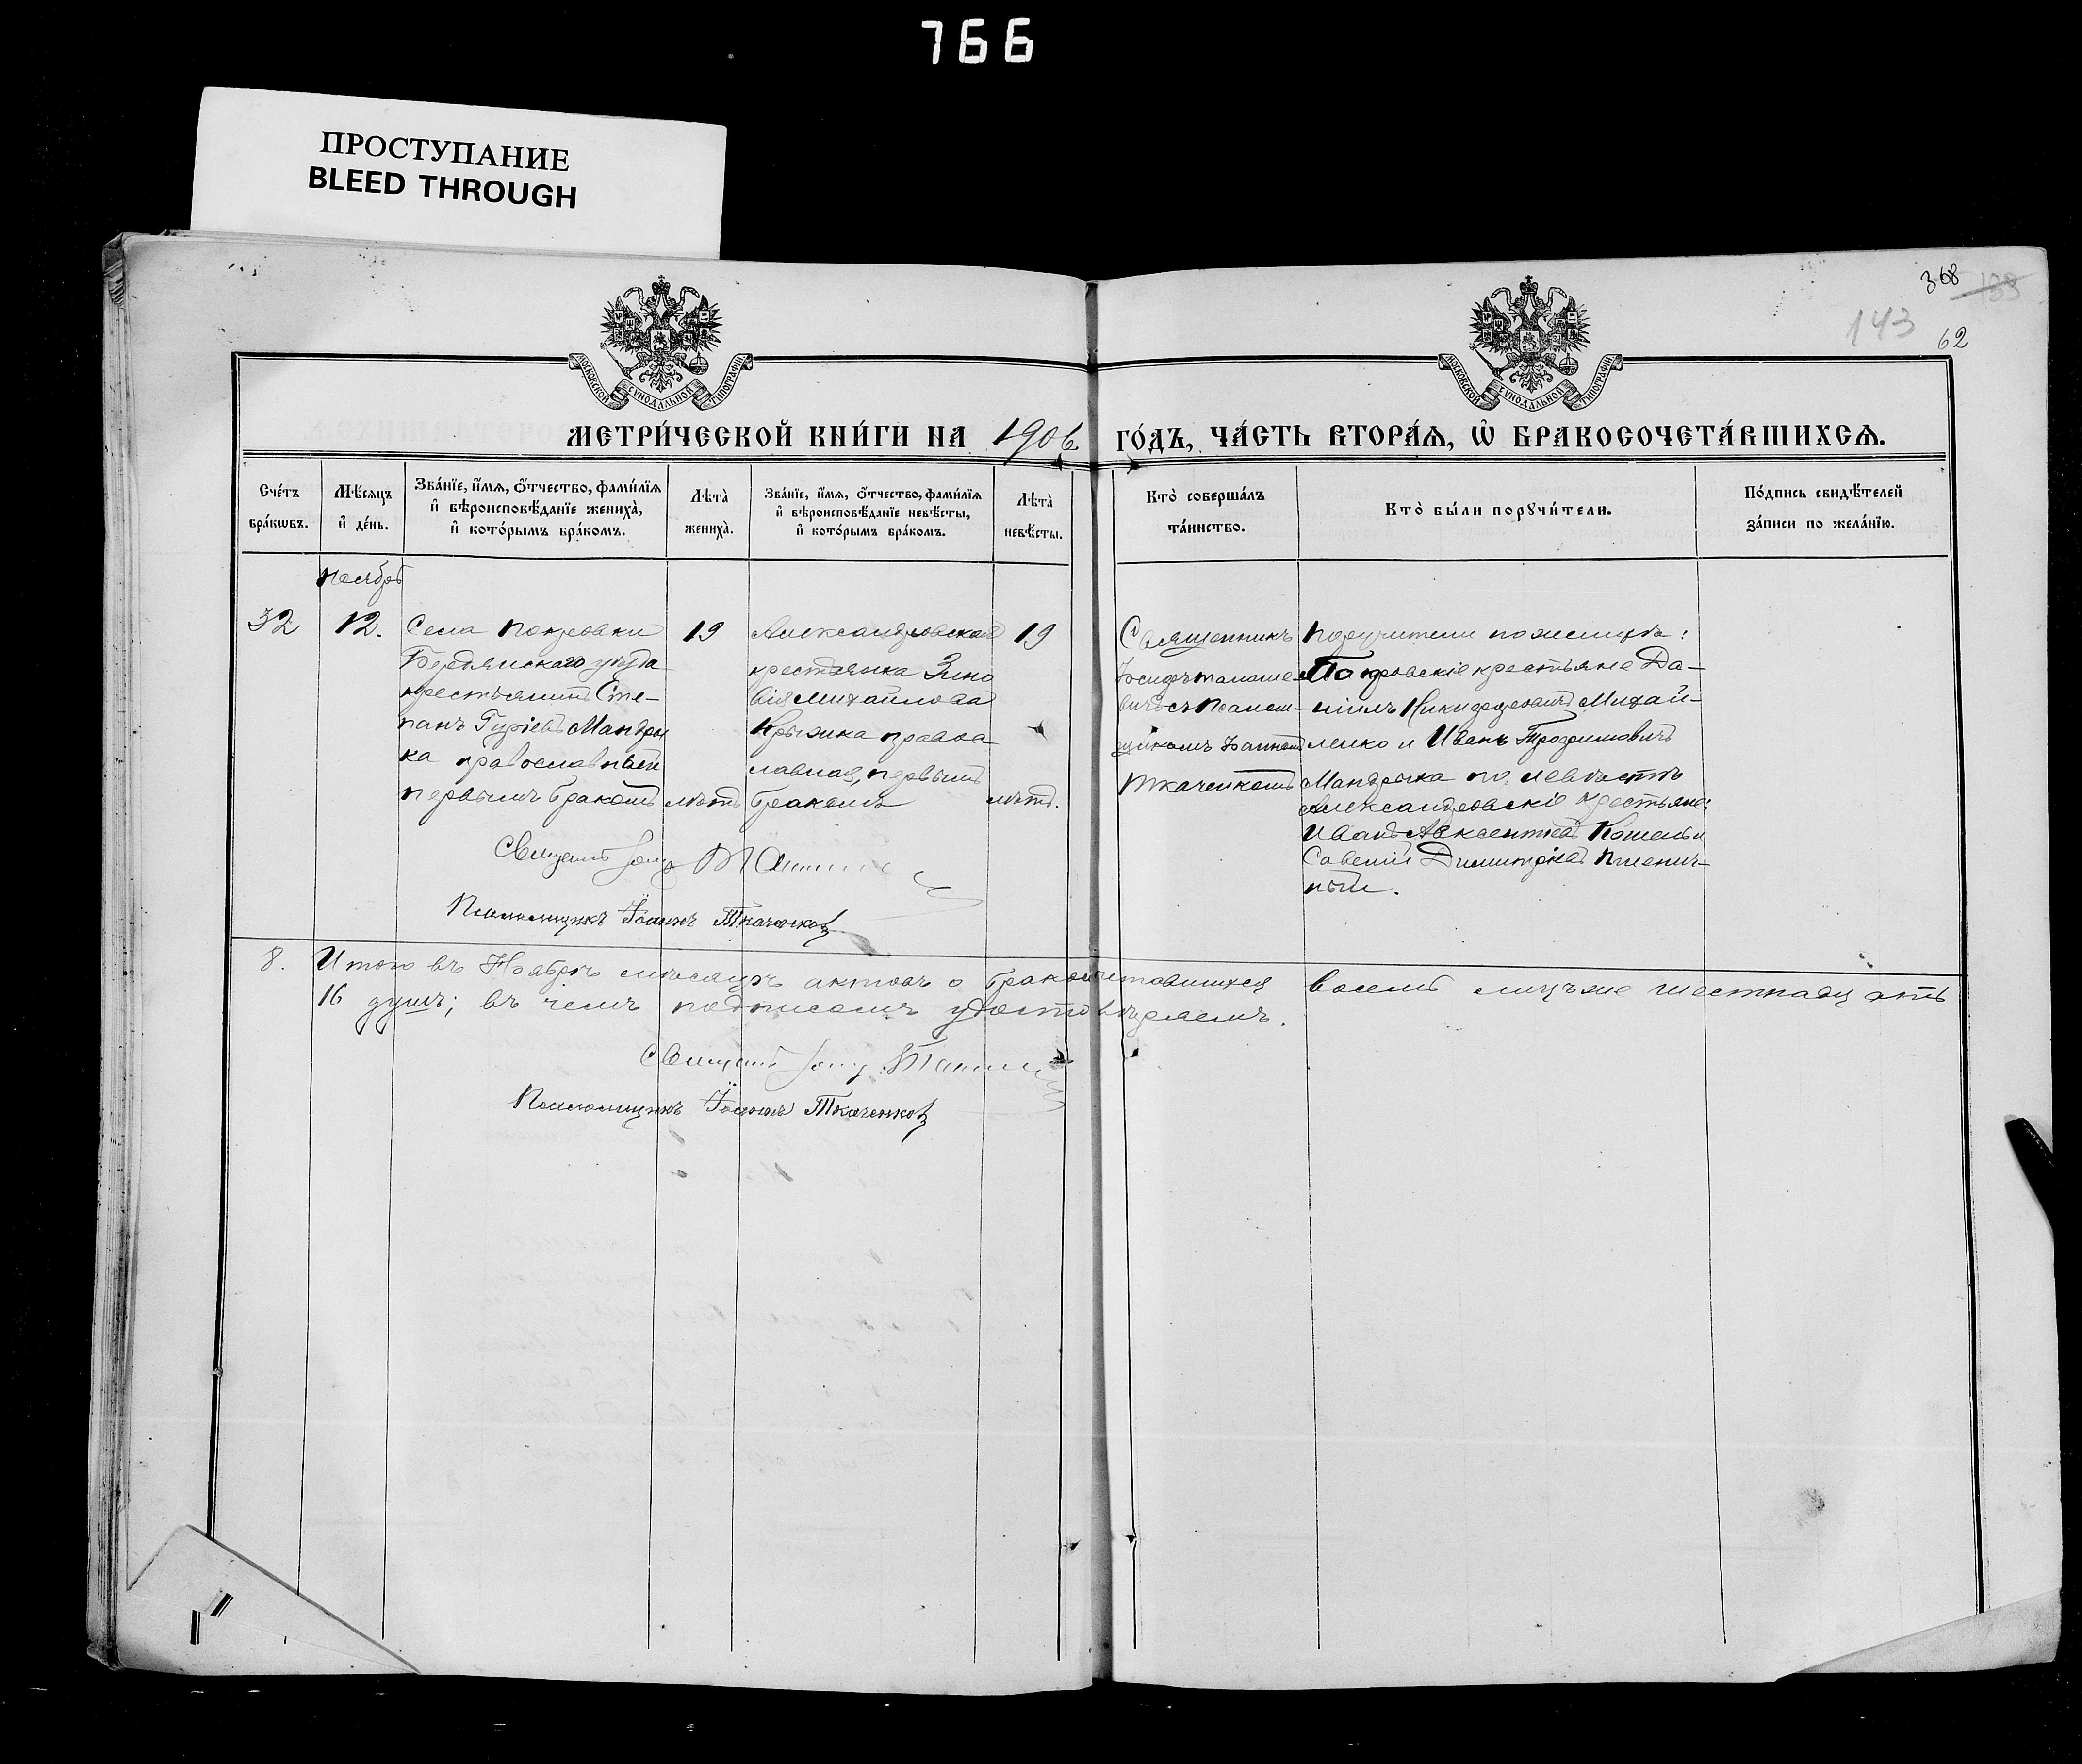 766
ПРОСТУПАНИЕ
BLEED THROUGH
368 133
143
62
МОСКОВСКОЙ СУНОДАЛЬНОЙ ТИПОГРАФІИ
МОСКОВСКОЙ СУНОДАЛЬНОЙ ТИПОГРАФІИ
МЕТРИ́ЧЕСКОЙ КНИ́ГИ НА 1906 ГО́ДЪ, ЧА́СТЬ ВТОРА́Ѧ, Ѡ҆ БРАКОСОЧЕТА́ВШИХСѦ.
Сче́тъ
бра́кѡвъ.
Мѣ́сѧцъ
и҆ де́нь.
Зва́нїе, и҆́мѧ, ѻ҆́тчество, фами́лїѧ
и҆ вѣроисповѣ́данїе жениха̀,
и҆ кото́рымъ бра́комъ.
Лѣ́та̀
жениха̀.
Зва́нїе, и҆́мѧ, ѻ҆́тчество, фами́лїѧ
и҆ вѣроисповѣ́данїе невѣ́сты,
и҆ кото́рымъ бра́комъ.
Лѣ́та̀
невѣ́сты.
Кто̀ соверша́лъ
та́инство.
Кто̀ бы́ли порꙋчи́тели.
По́дпись свидѣ́телей
за́писи по жела́нїю.
Ноябрь
32
12.
Села Покровки
Бердянскаго уѣзда
крестьянинъ Сте-
панъ Гуріевъ Мандры
ка православный
первымъ бракомъ
19
лѣтъ
Александровская
крестьянка Зино
вія Михайлова
Крыжка право
славная, первымъ
бракомъ
19
лѣтъ.
Священникъ
Іосифъ
съ Псалом-
щикомъ Іоанномъ
Ткаченкомъ
Поручители по женихѣ:
Покровскіе крестьяне Да-
ніилъ Никифоровъ Михай-
ленко и Иванъ Трофимовичъ
Мандрыка по невѣстѣ
Александровскіе крестьяне:
Иванъ Авксентіевъ Кошель и
Савелій Димитріевъ Пшенич-
ный.
Священ.
Псаломщикъ Іоаннъ Ткаченковъ
8. Итого въ Ноябрѣ мѣсяцѣ актовъ о бракосочетавшихся восемь лицъ же шестнадцать
16 душъ; въ чемъ подписомъ удостовѣряемъ.
Священ.
Псаломщикъ Іоаннъ Ткаченковъ